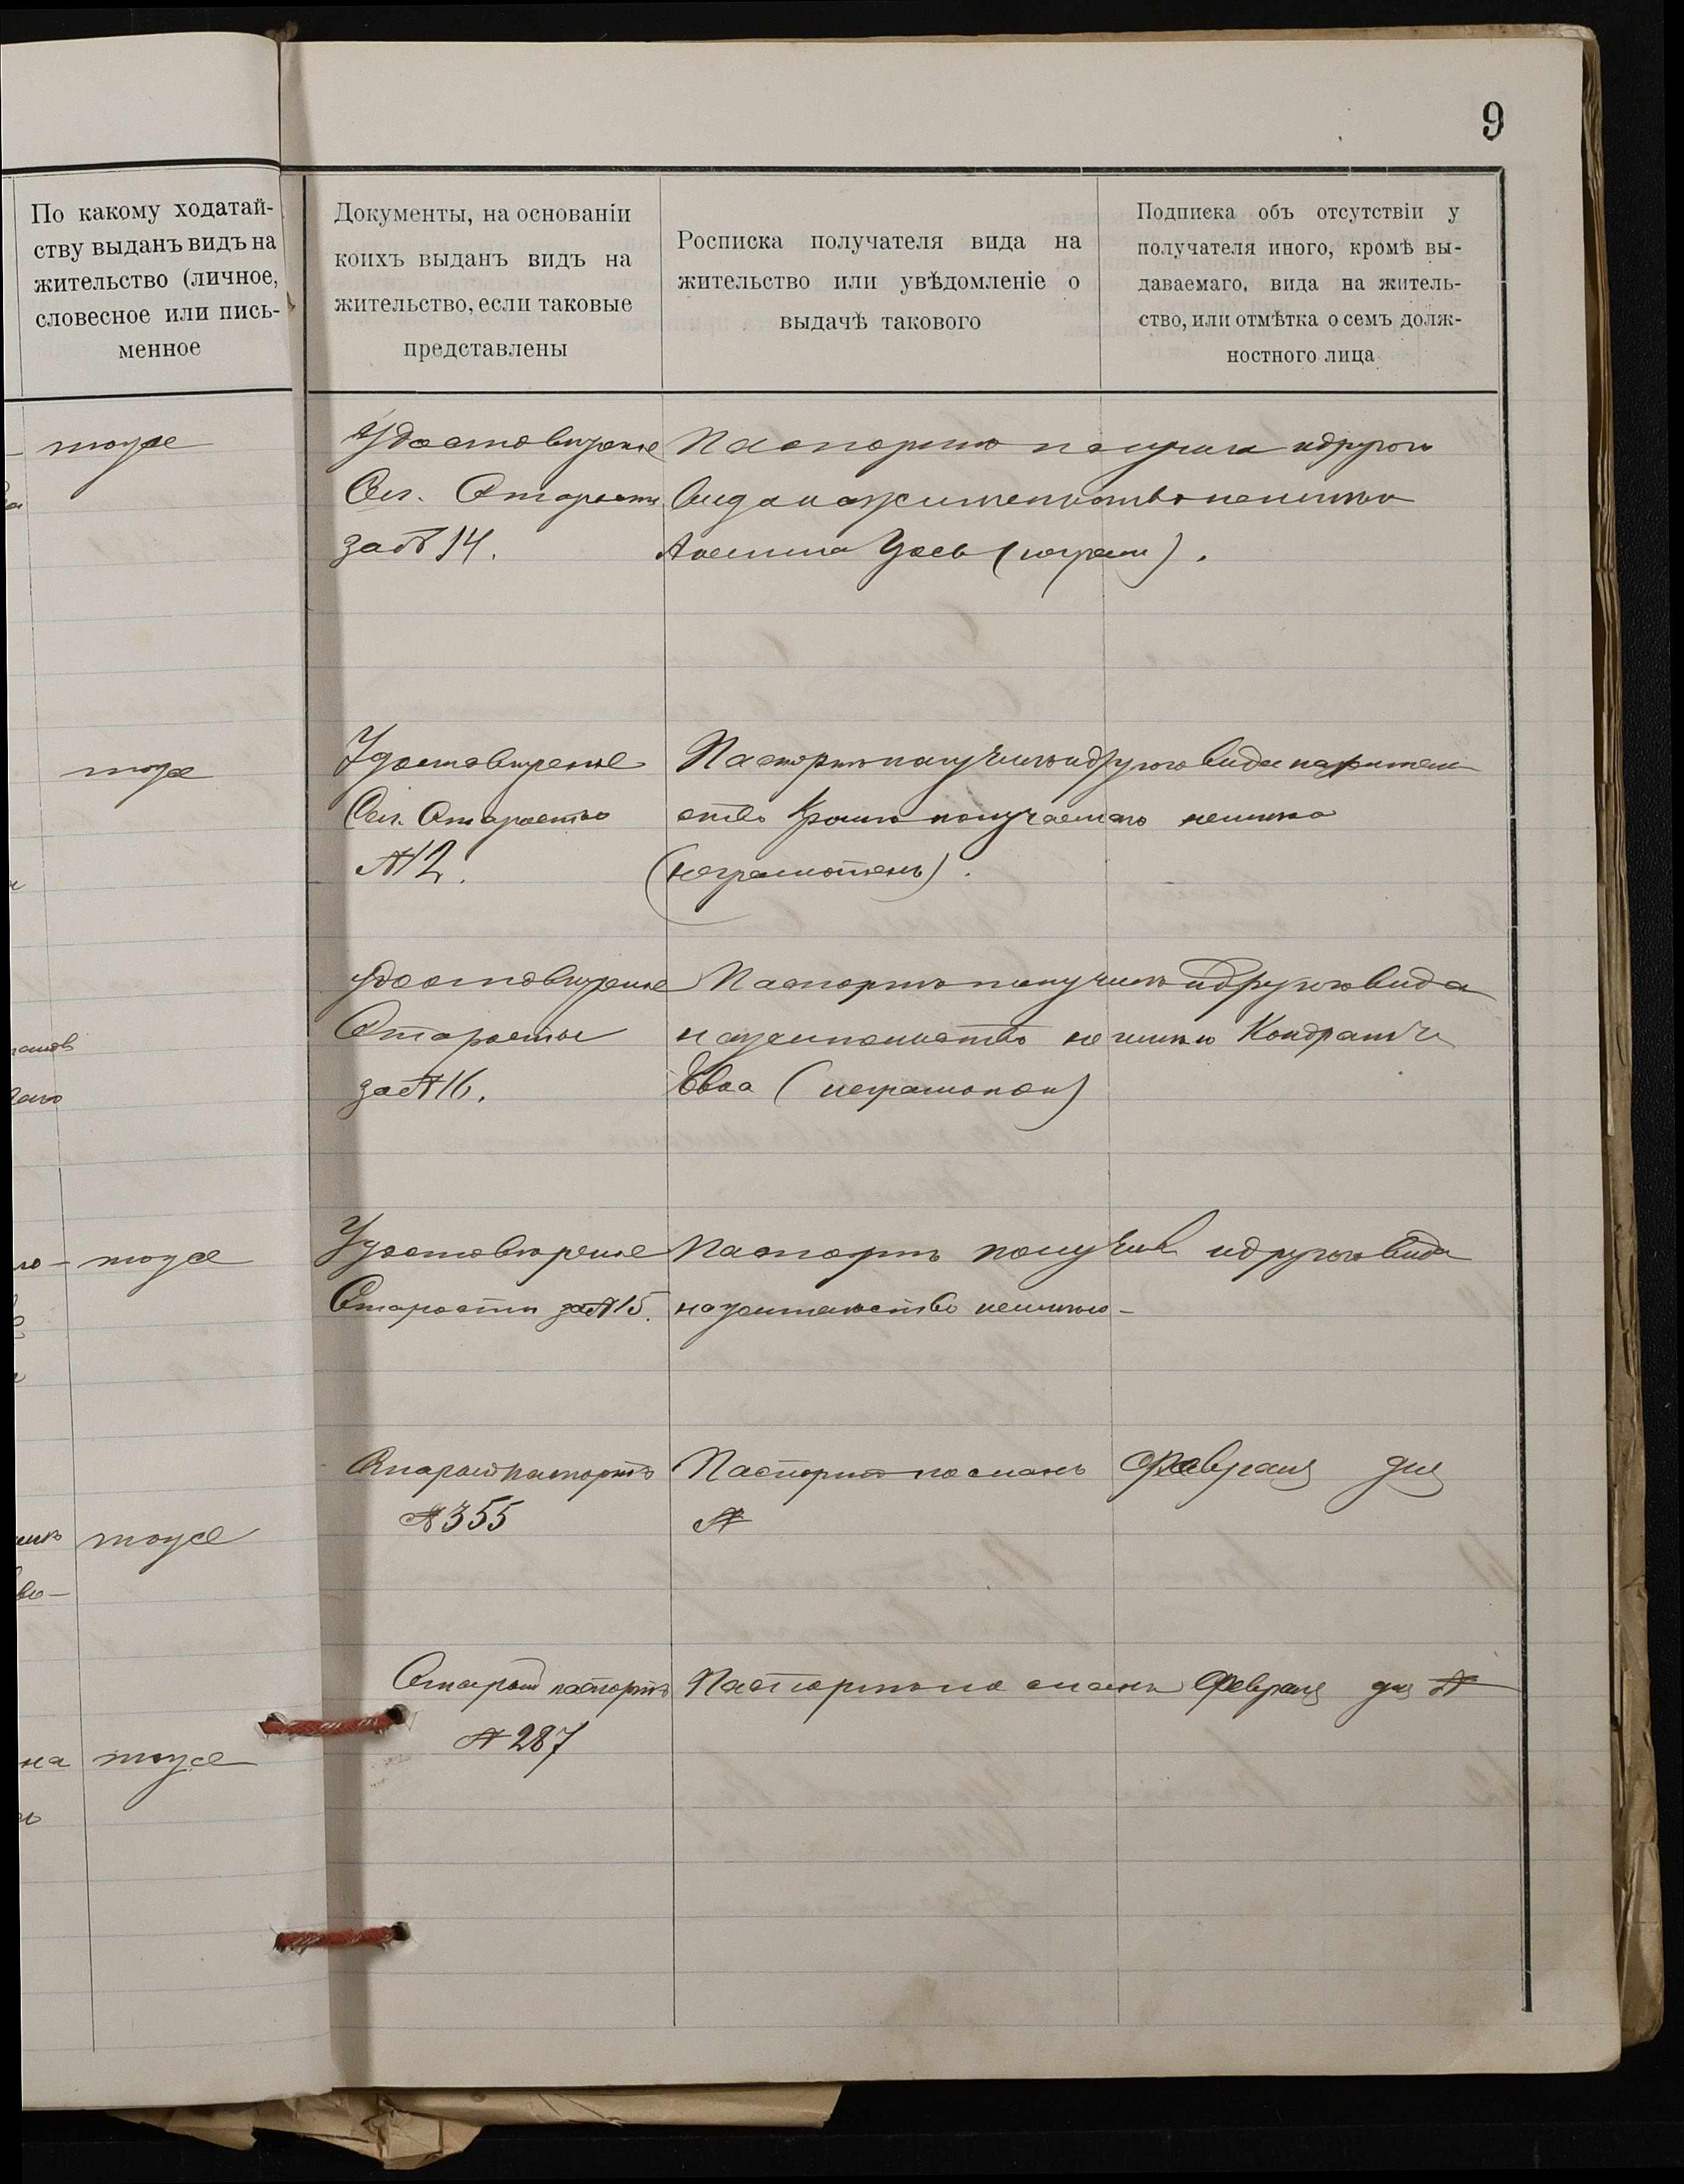 9
По какому ходатай-
ству выданъ видъ на
жительство (личное,
словесное или пись-
менное
Документы, на основаніи
коихъ выданъ видъ на
жительство, если таковые
представлены
Росписка получателя вида на
жительство или увѣдомленіе о
выдачѣ такового
Подписка объ отсутствіи у
получателя иного, кромѣ вы-
даваемаго, вида на житель-
ство, или отмѣтка о семъ долж-
ностного лица
тоже
Удостовѣреніе
Сел. Старосты
за № 14.
Паспортъ получила и другого
вида на жительство неимѣю
(неграм).
тоже
Удостовѣреніе
Сел. Старосты
№ 12.
Паспортъ получилъ и другого вида на житель
ство кромѣ получаемаго неимѣю
(неграмотенъ).
Удостовѣреніе
Старосты
за № 16.
Паспортъ получилъ и другого вида
на жительство неимѣю
(неграмотен)
тоже
Удостовѣреніе
Старосты за № 15.
Паспортъ получилъ и другого вида
на жительство неимѣю -
тоже
Старый паспортъ
№ 355
Паспортъ посланъ Февраля дня
№
тоже
Старый паспортъ
№ 287
Паспортъ посланъ Февраля дня №